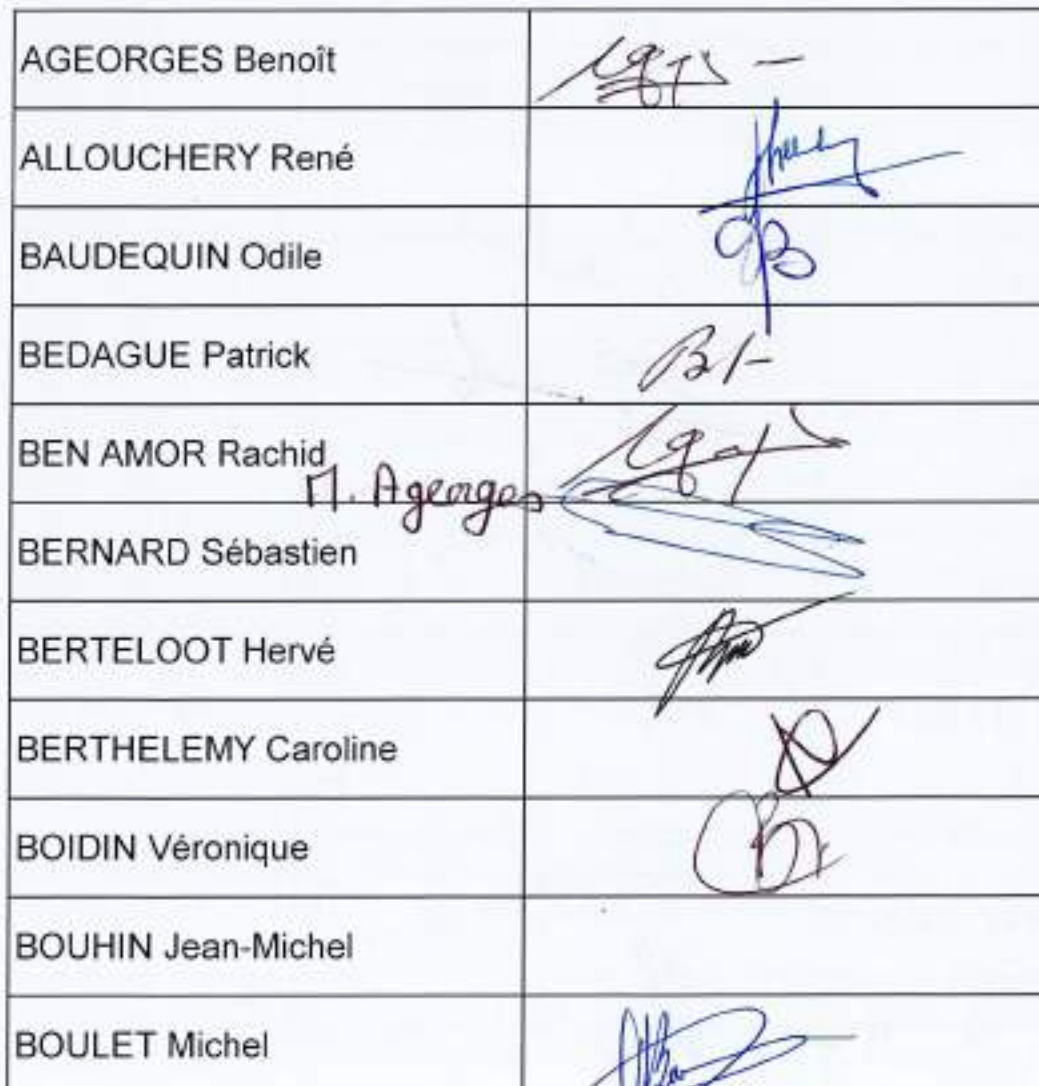 AGEORGES Benoît
ALLOUCHERY René
BAUDEQUIN Odile
BEDAGUE Patrick
BEN AMOR Rachid
M. Ageorges
BERNARD Sébastien
BERTELOOT Hervé
BERTHELEMY Caroline
BOIDIN Véronique
BOUHIN Jean-Michel
BOULET Michel